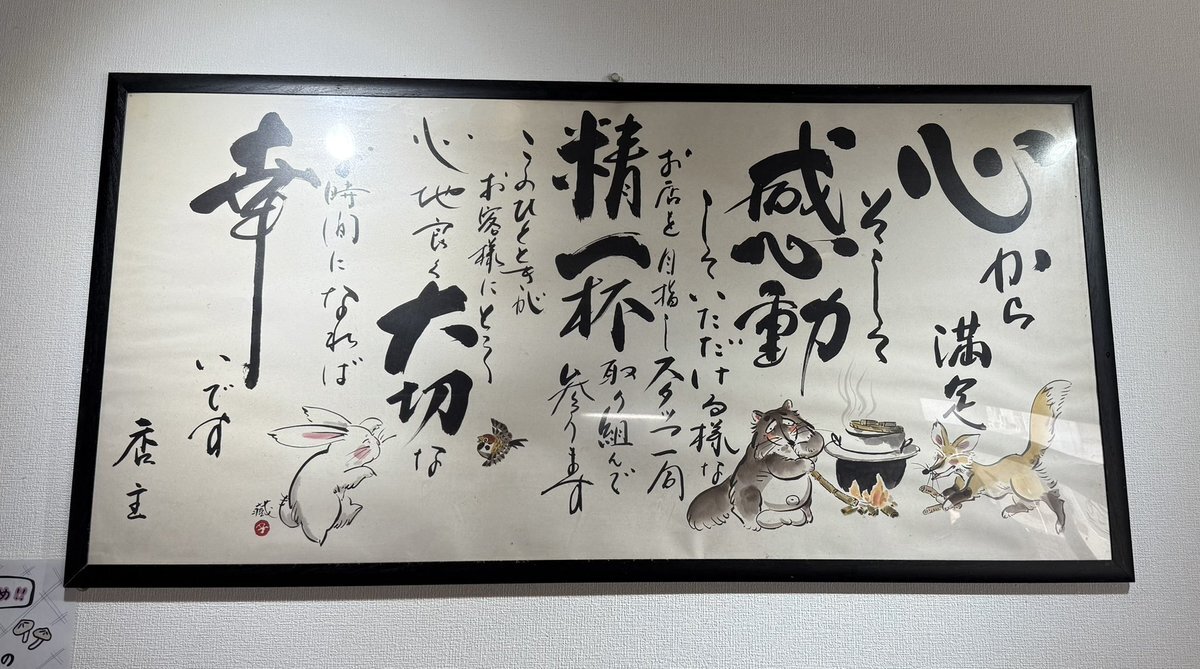 心から満足
そして
感動
していただける様な
お店を目指しスタッフ一同
精一杯取り組んで
参ります
このひとときが
お客様にとって
心地良く大切な
お時間になれば
幸いです
店主
藏
め!!
の